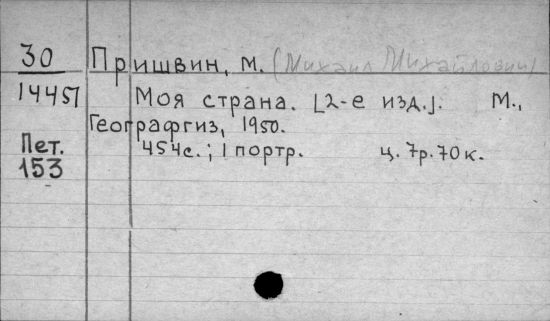 30 Пришвин, М. (Михаил Михайлович)
14451 Моя страна. [2-е изд.]. М.,
Географгиз, 1950.
Пет. 454с.; 1 портр. ц. 7р. 70к.
153